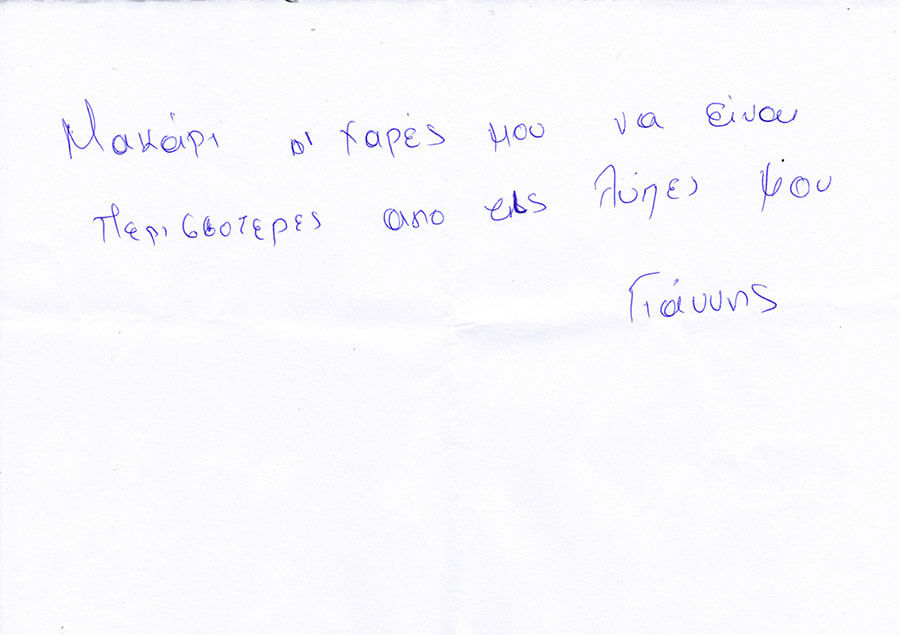 Μακάρι οι χαρές μου να είναι
περισσοτερες απο τις λύπες μου
Γιάννης